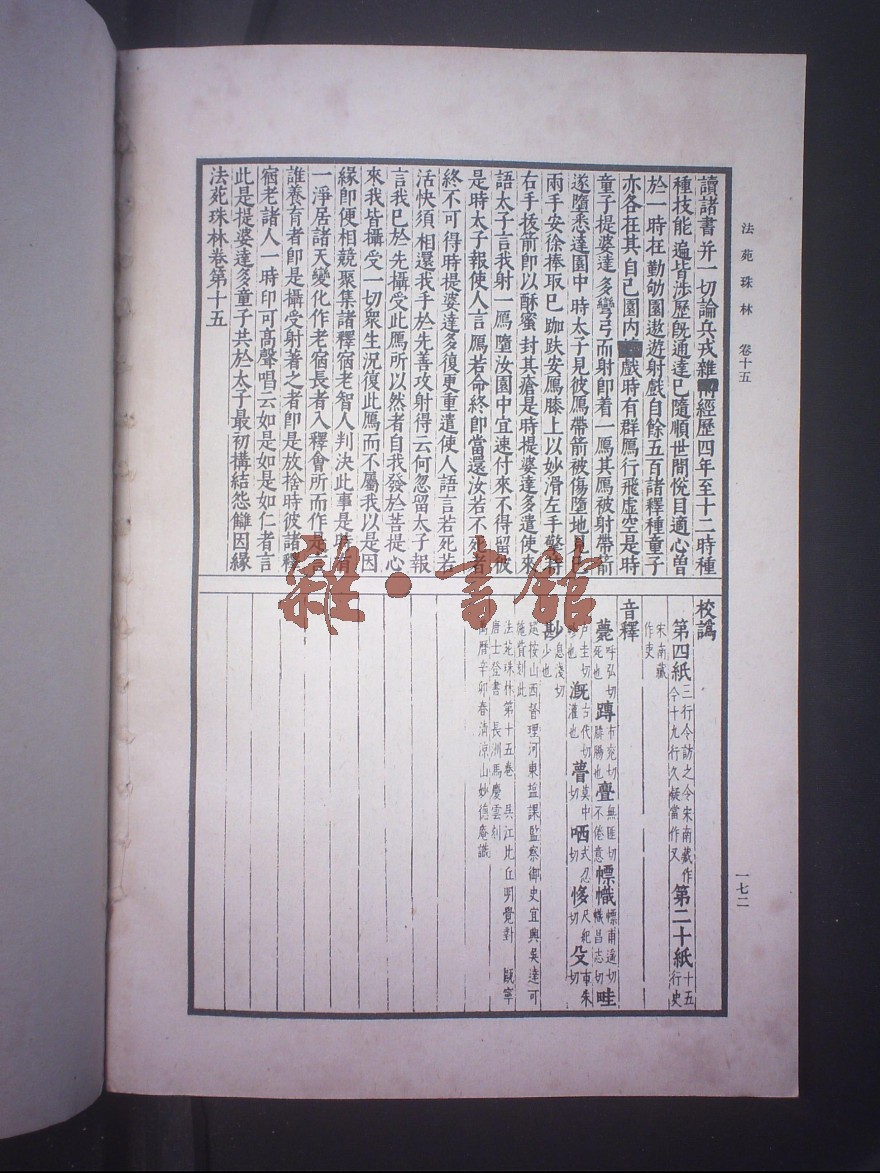 法苑珠林 卷十五
讀諸書并一切論兵戎雜術經歷四年至十二時種
種技能遍皆涉歷旣通達已隨順世間悅目適心曾
於一時在勤劬園遨遊射戲自餘五百諸釋種童子
亦各在其自己園内戲時有群鴈行飛虛空是時
童子提婆達多彎弓而射即着一鴈其鴈被射帶箭
遂墮悉達園中時太子見彼鴈帶箭被傷墮地見已
兩手安徐捧取已跏趺安鴈膝上以妙滑左手擎持
右手拔箭即以酥蜜封其瘡是時提婆達多遣使來
語太子言我射一鴈墮汝園中宜速付來不得留彼
是時太子報使人言鴈若命終即當還汝若不死者
終不可得時提婆達多復更重遣使人語言若死若
活快須相還我手於先善攻射得云何忽留太子報
言我已於先攝受此鴈所以然者自我發於菩提心
來我皆攝受一切衆生況復此鴈而不屬我以是因
緣即便相競聚集諸釋宿老智人判決此事是時有
一淨居諸天變化作老宿長者入釋會所而作是言
誰養育者即是攝受射著之者即是放捨時彼諸釋
宿老諸人一時印可高聲唱云如是如是如仁者言
此是提婆達多童子共於太子最初構結怨讎因緣
法苑珠林卷第十五
校譌
第四紙三行令訪之令宋南藏作今十九行久疑當作又 第二十紙十五行史
宋南藏作吏
音釋
薨呼弘切死也 䏝市兖切腓腸也 亹無匪切不倦意 幖幟幖甫遥切幟昌志切 畦
户圭切 溉古代切灌也 瞢莫中切 哂式忍切 恀尺紀切 殳市朱切
尠息淺切少也
廵按山西督理河東塩課監察御史宜興吳達可
施貲刻此
法苑珠林第十五卷 吳江比丘明覺對 甌寧
唐士登書 長洲馬慶雲刻
萬曆辛卯春清凉山妙德庵識
一七二
雜·書館